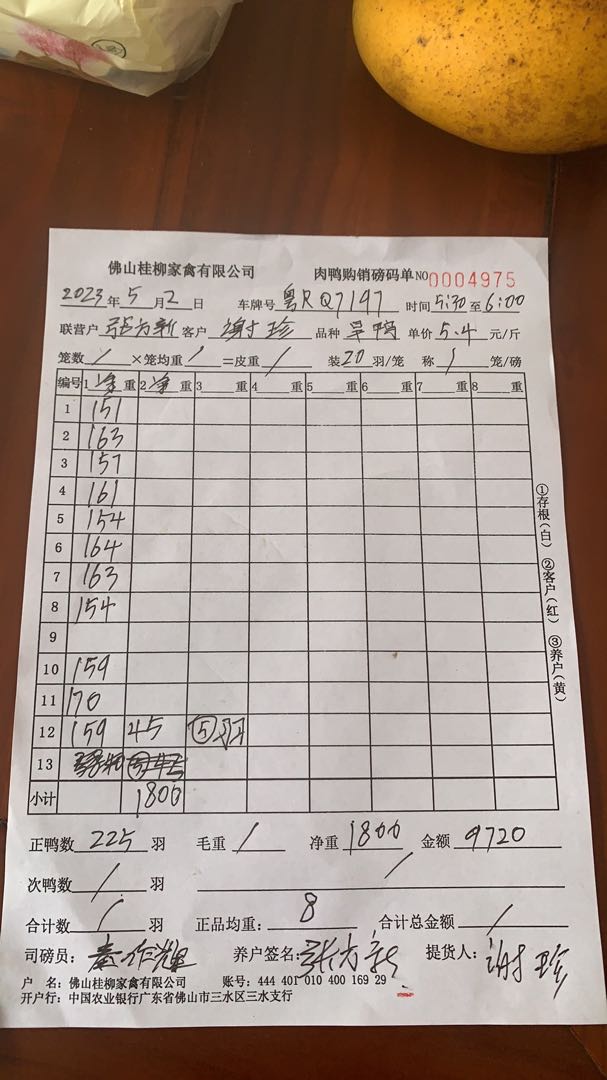 佛山桂柳家禽有限公司 肉鸭购销磅码单 NO 0004975
2023年5月2日 车牌号 粤RQ7197 时间5:30至6:00
联营户 张方新 客户 谢珍 品种 旱鸭 单价 5.4 元/斤
笼数 / ×笼均重 / =皮重 / 装20羽/笼 称 / 笼/磅
编号 1净重 2净重 3重 4重 5重 6重 7重 8重
1 151
2 163
3 157
4 161
5 154
6 164
7 163
8 154
9
10 159
11 170
12 159 45 ⑤羽
13
小计 1800
①存根(白) ②客户(红) ③养户(黄)
正鸭数 225 羽 毛重 / 净重 1800 金额 9720
次鸭数 / 羽 /
合计数 / 羽 正品均重: 8 合计总金额 /
司磅员: 秦作辉 养户签名: 张方新 提货人: 谢珍
户 名: 佛山桂柳家禽有限公司 账号: 444 401 010 400 169 29
开户行: 中国农业银行广东省佛山市三水区三水支行